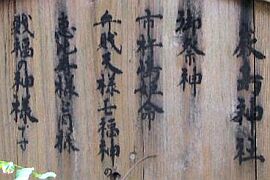 厳島神社
御祭神
市杵嶋姫命
弁戝天様七福神の
恵比寿様同様
戝福の神様です